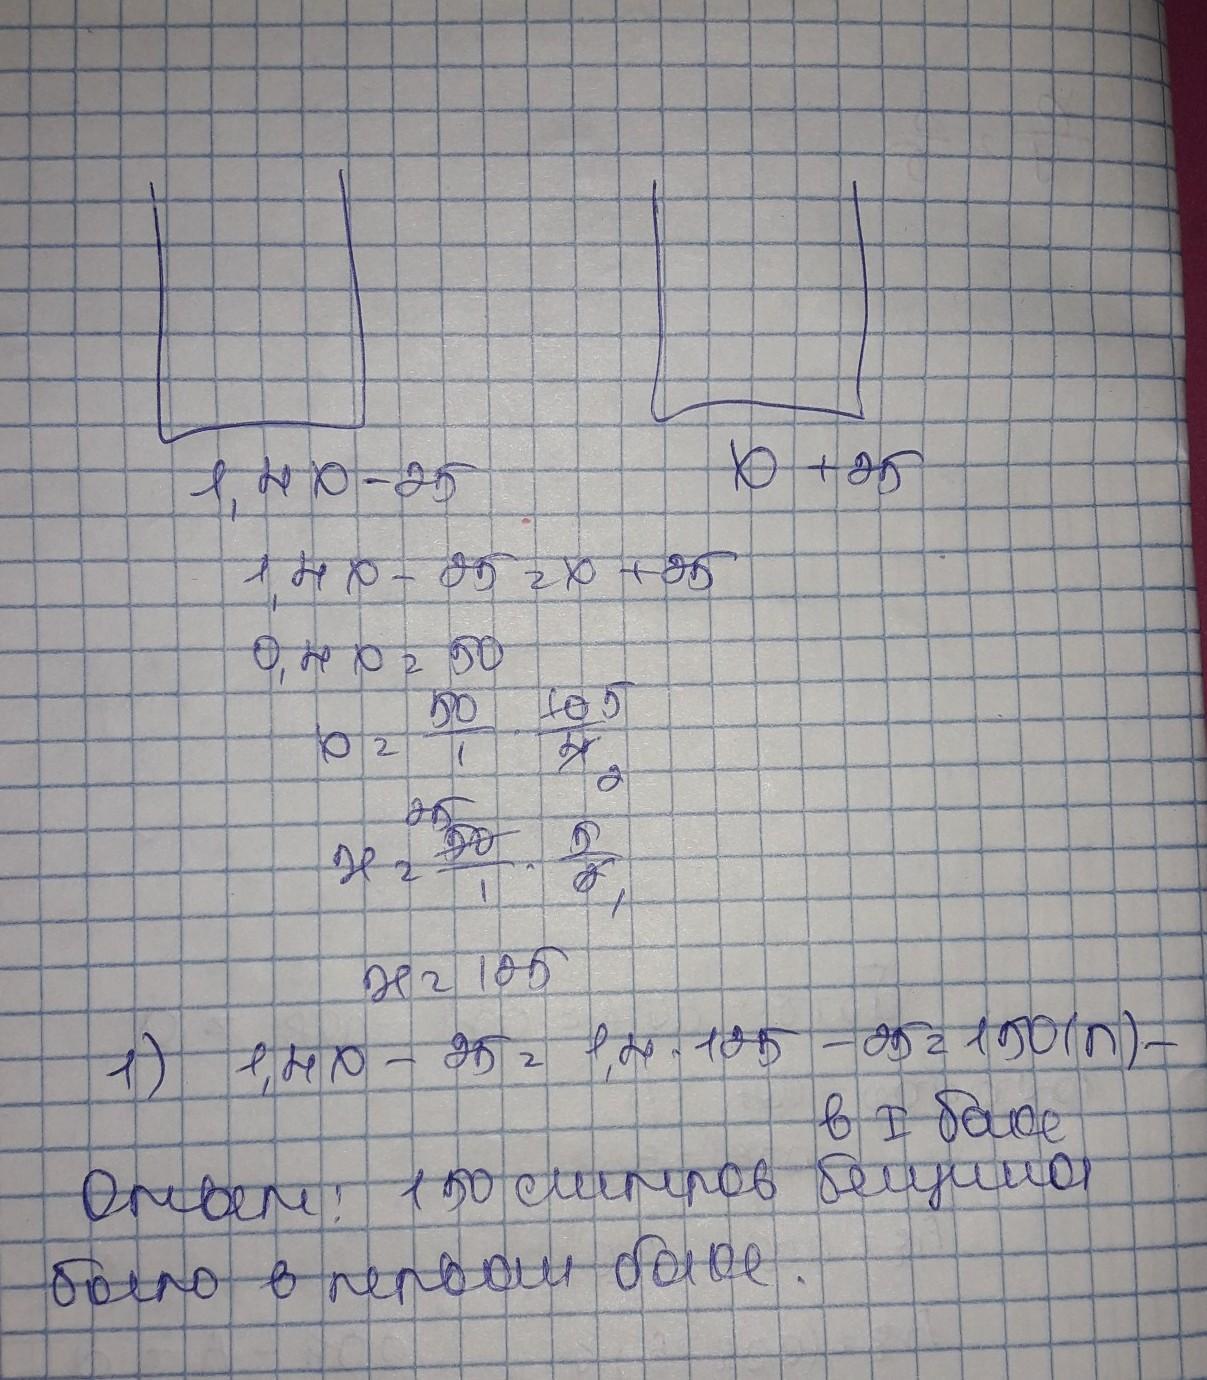 1,4x-25 x+25
1,4x-25=x+25
0,4x=50
x=50/1·10 5/4 2
x=25 50/1·5/2 1
x=125
1) 1,4x-25=1,4·125-25=150(л)-
в I баке
Ответ: 150 литров бензина
было в первом баке.